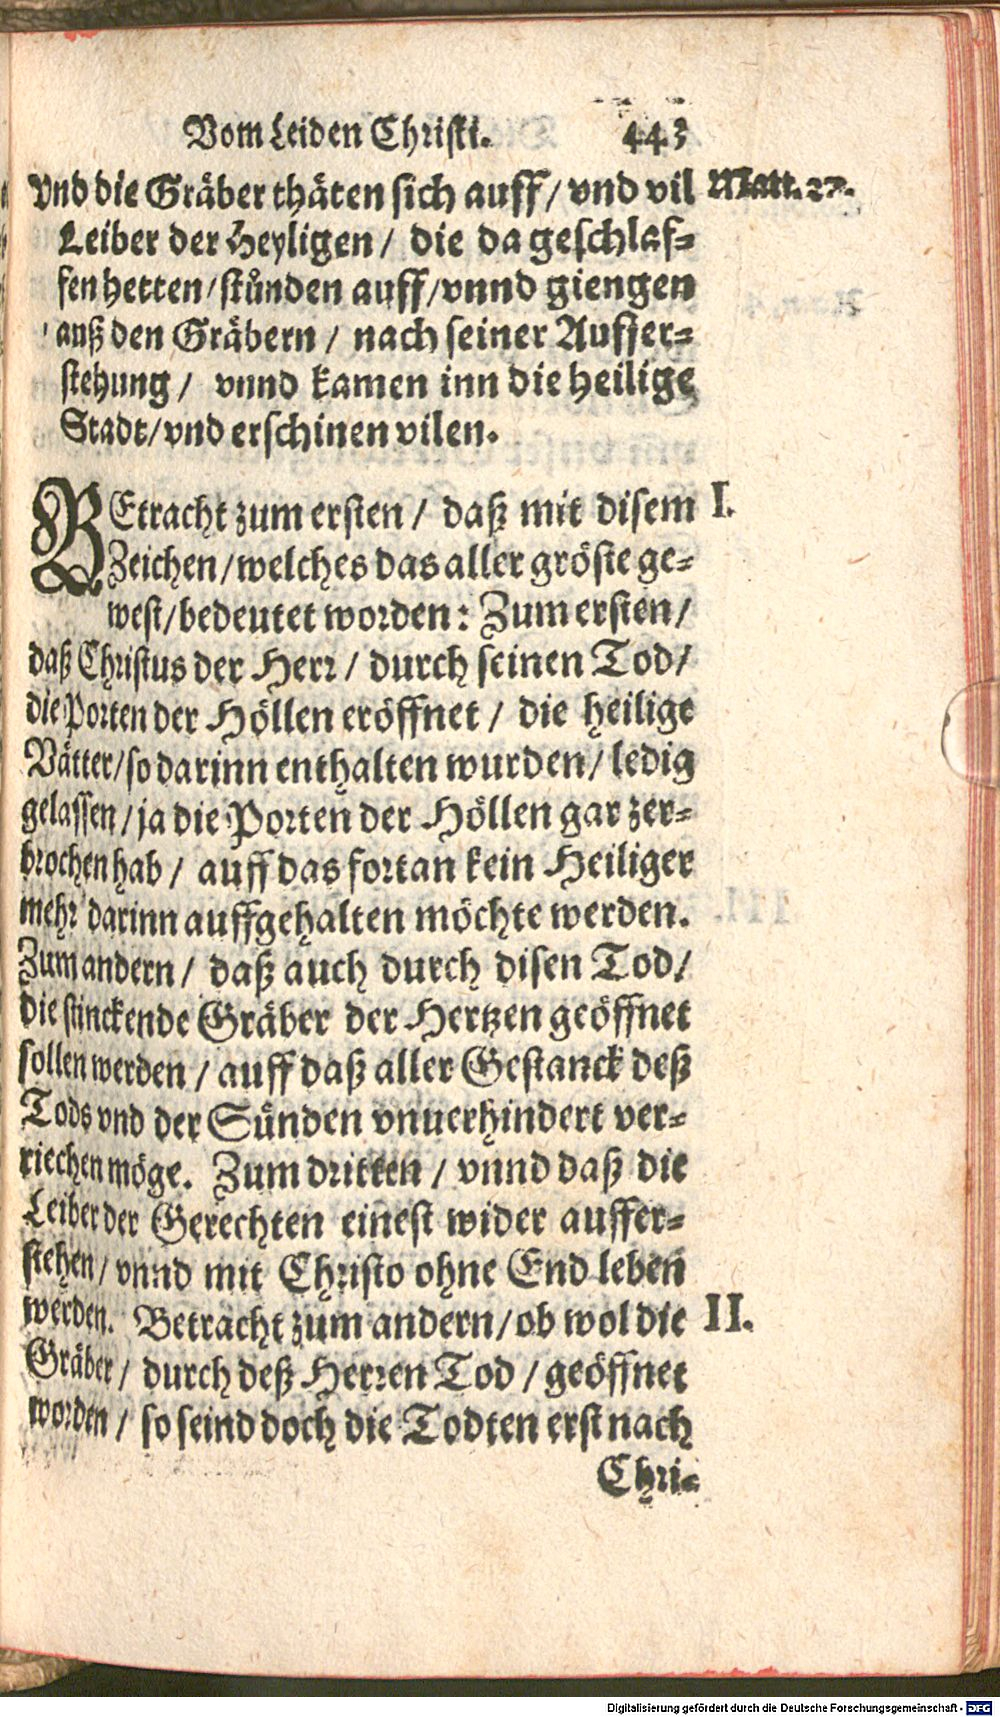 Vom Leiden Christi. 443
vnd die Gräber thäten sich auff/ vnd vil Matt. 27.
Leiber der Heyligen/ die da geschlaf-
fen hetten/stůnden auff/vnnd giengen
auß den Gräbern/ nach seiner Auffer-
stehung/ vnnd kamen inn die heilige
Stadt/vnd erschinen vilen.
BEtracht zum ersten/ daß mit disem I.
Zeichen/welches das aller gröste ge-
west/bedeutet worden: Zum ersten/
daß Christus der Herr/ durch seinen Tod/
die Porten der Höllen eröffnet/ die heilige
Vätter/so darinn enthalten wurden/ ledig
gelassen/ja die Porten der Höllen gar zer-
brochen hab/ auff das fortan kein Heiliger
mehr darinn auffgehalten möchte werden.
Zum andern/ daß auch durch disen Tod/
die stinckende Gräber der Hertzen geöffnet
sollen werden/ auff daß aller Gestanck deß
Tods vnd der Sünden vnuerhindert ver-
riechen möge. Zum dritten/ vnnd daß die
Leiber der Gerechten einest wider auffer-
stehen/ vnnd mit Christo ohne End leben
werden. Betracht zum andern/ob wol die II.
Gräber/ durch deß Herren Tod/geöffnet
worden/ so seind doch die Todten erst nach
Chri-
Digitalisierung gefördert durch die Deutsche Forschungsgemeinschaft - DFG